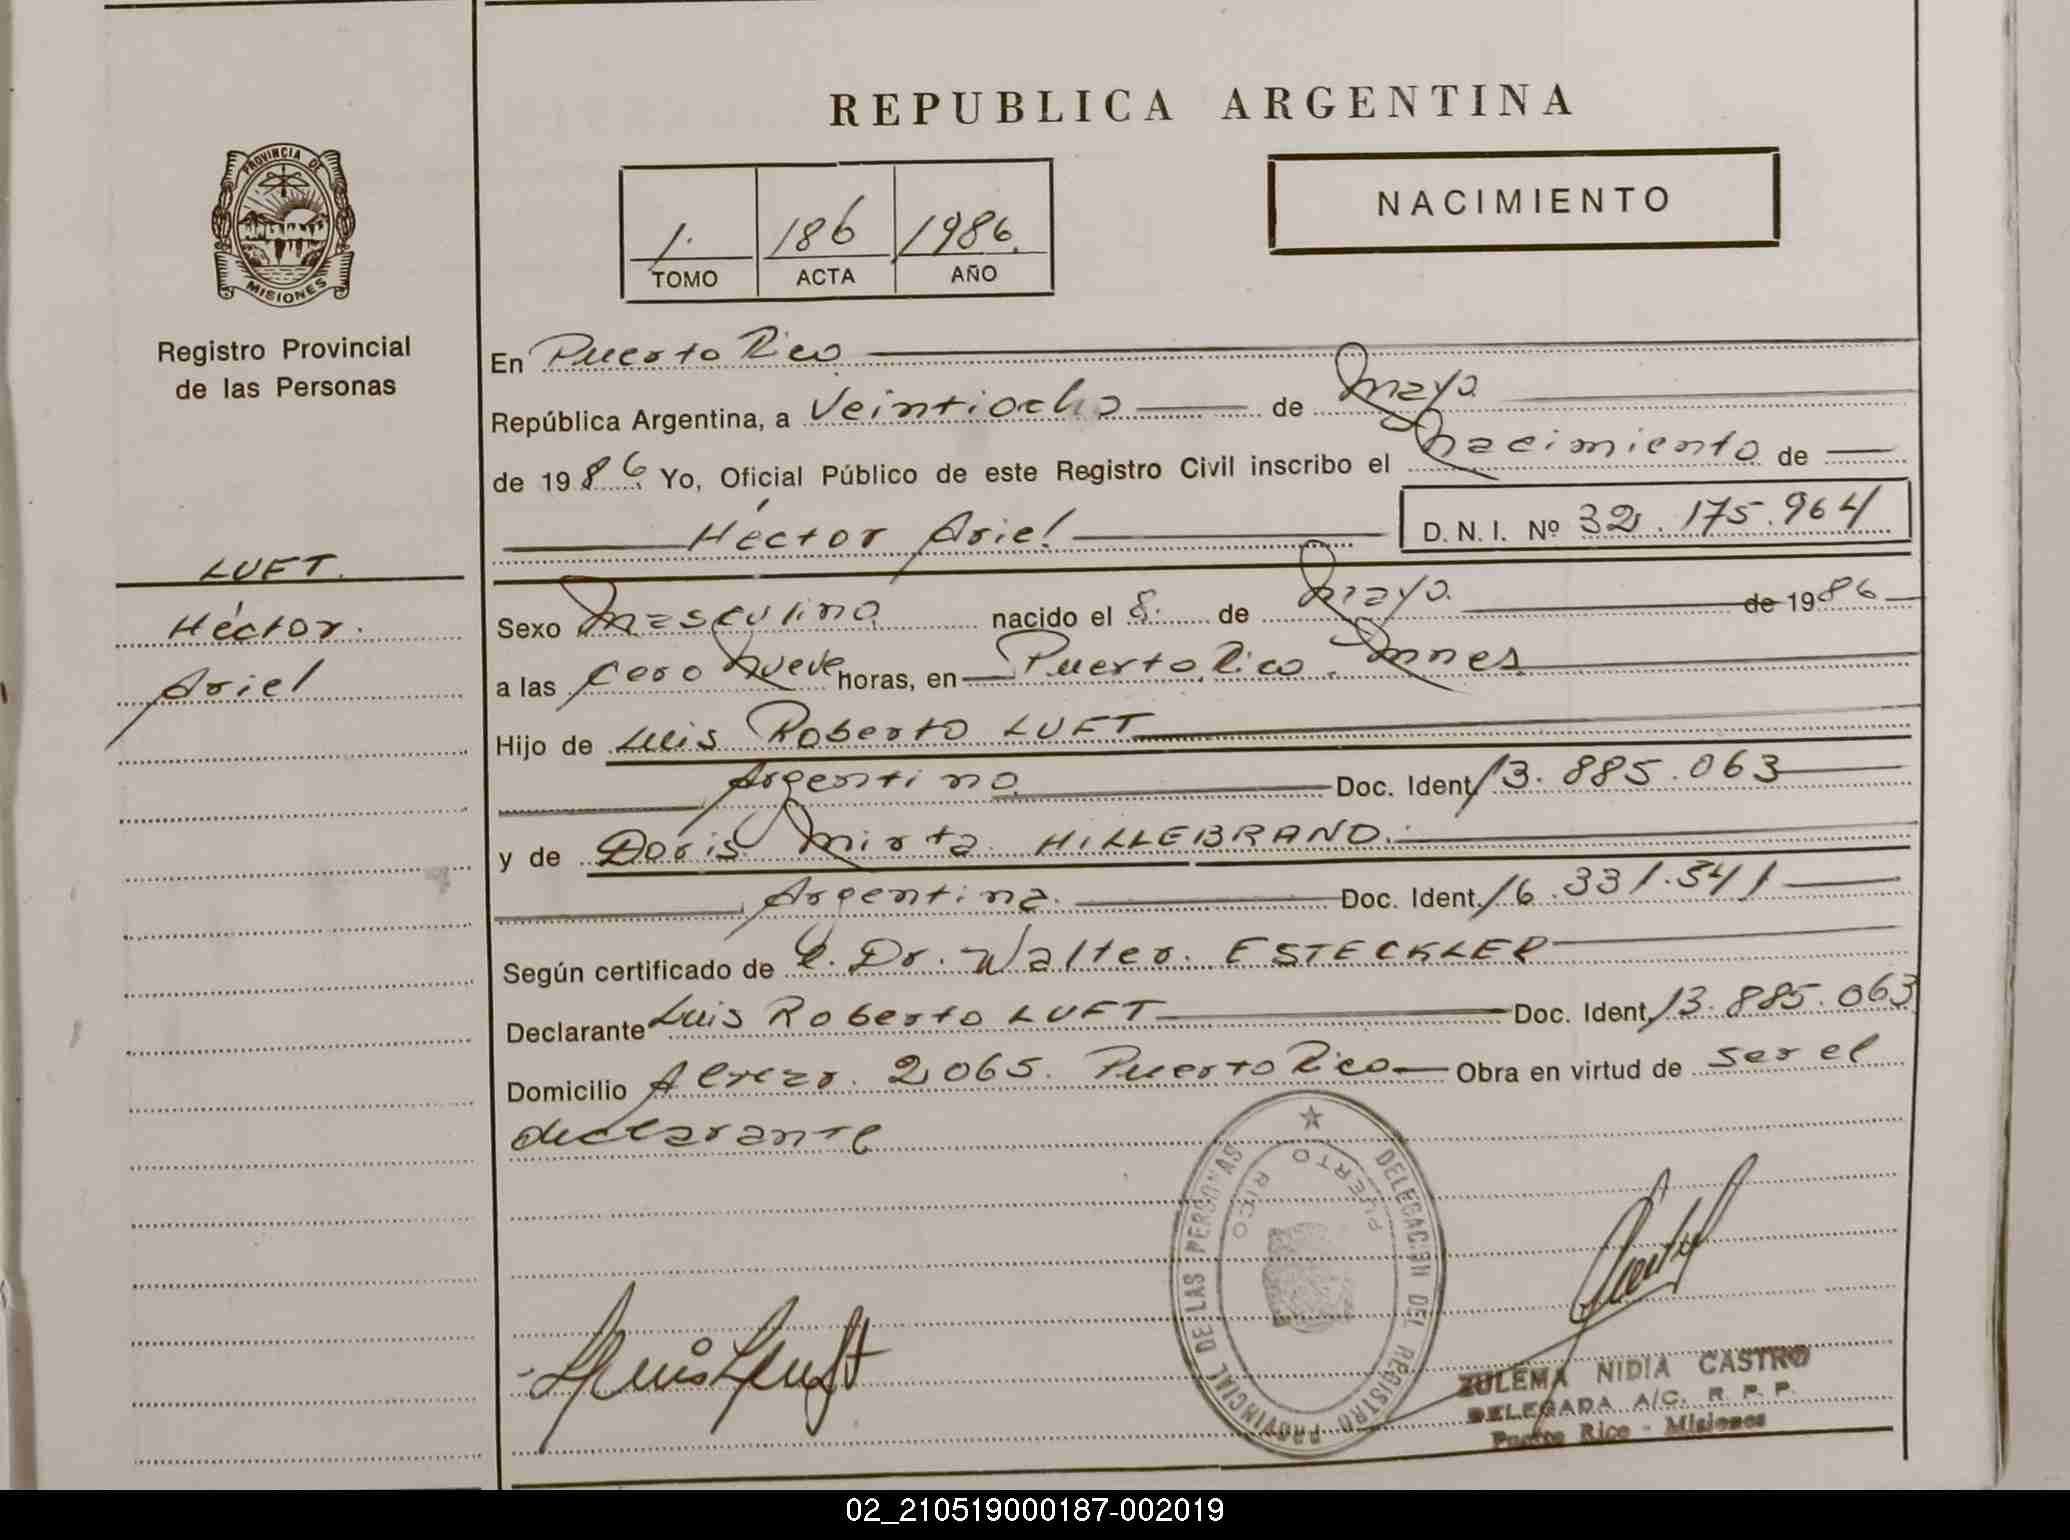 REPUBLICA ARGENTINA
PROVINCIA DE
MISIONES
Registro Provincial
de las Personas
LUFT.
Héctor.
Ariel
1. 186 1986.
TOMO ACTA AÑO
NACIMIENTO
En Puerto Rico
República Argentina, a Veintiocho de mayo
de 1986 Yo, Oficial Público de este Registro Civil inscribo el nacimiento de
Héctor Ariel D. N. I. Nº 32.175.964
Sexo masculino nacido el 8. de mayo. de 1986
a las cero nueve horas, en Puerto Rico. Mnes
Hijo de Luis Roberto LUFT
Argentino Doc. Ident. 13.885.063
y de Doris Mirta HILLEBRAND.
Argentina. Doc. Ident. 16.331.341
Según certificado de Dr. Walter. ESTECKLER
Declarante Luis Roberto LUFT Doc. Ident. 13.885.063
Domicilio 2065. Puerto Rico Obra en virtud de ser el
declarante
DELEGACION DEL REGISTRO PROVINCIAL DE LAS PERSONAS
PUERTO RICO
Luis Luft
ZULEMA NIDIA CASTRO
DELEGADA A/C. R. P. P.
Puerto Rico - Misiones
02_210519000187-002019